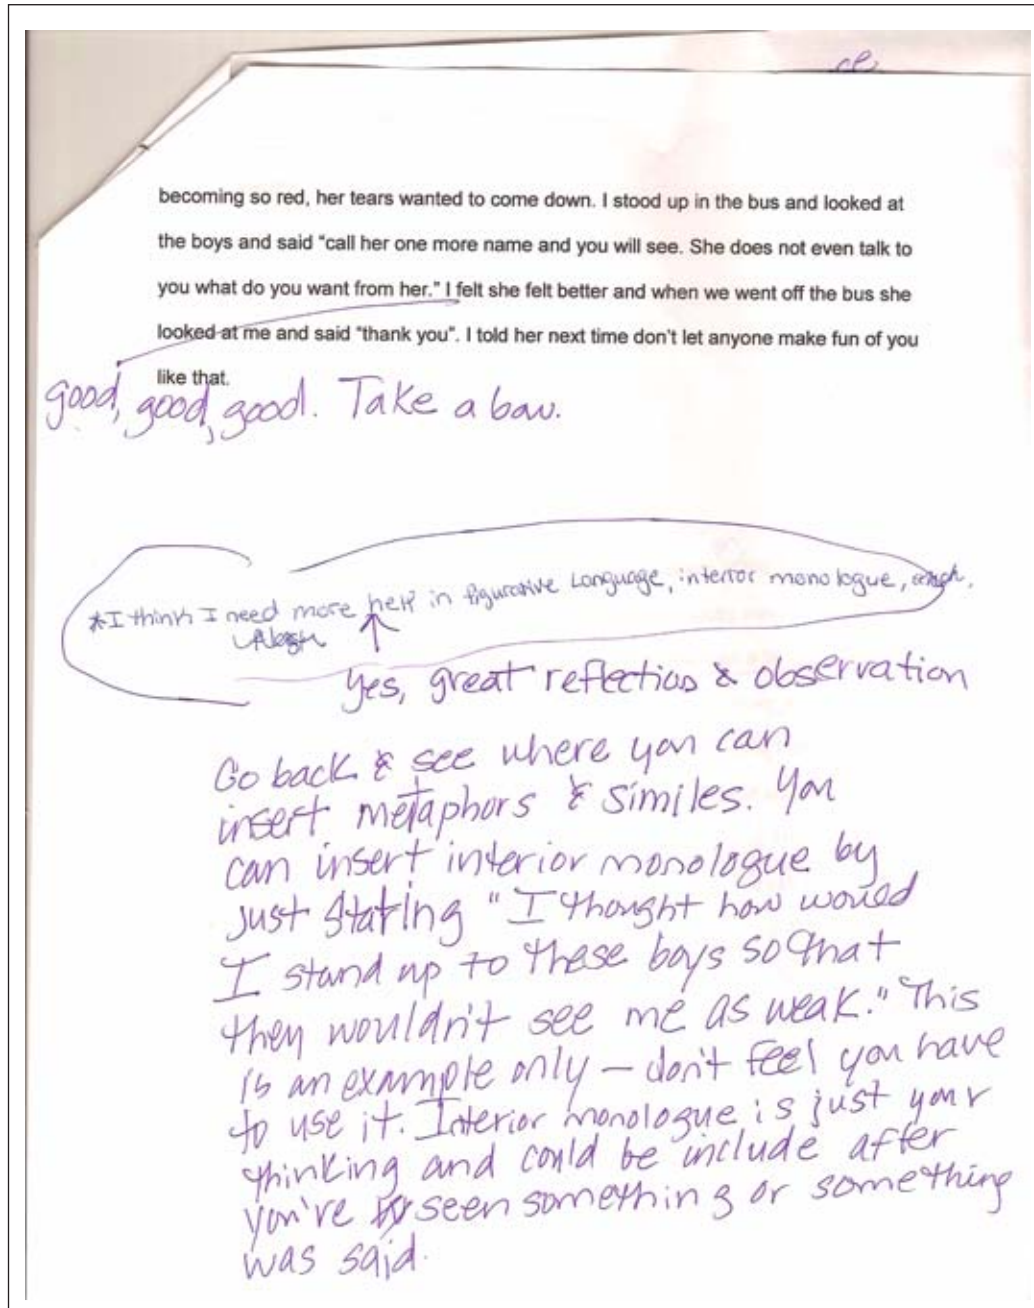 ce
becoming so red, her tears wanted to come down. I stood up in the bus and looked at
the boys and said “call her one more name and you will see. She does not even talk to
you what do you want from her.” I felt she felt better and when we went off the bus she
looked at me and said “thank you”. I told her next time don’t let anyone make fun of you
like that.
good, good, good. Take a bow.
*I think I need more help in figurative Language, interior monologue,
yes, great reflection & observation
Go back & see where you can
insert metaphors & similes. You
can insert interior monologue by
just stating "I thought how would
I stand up to these boys so that
they wouldn't see me as weak." This
is an example only – don't feel you have
to use it. Interior monologue is just your
thinking and could be include after
you're seen something or something
was said.